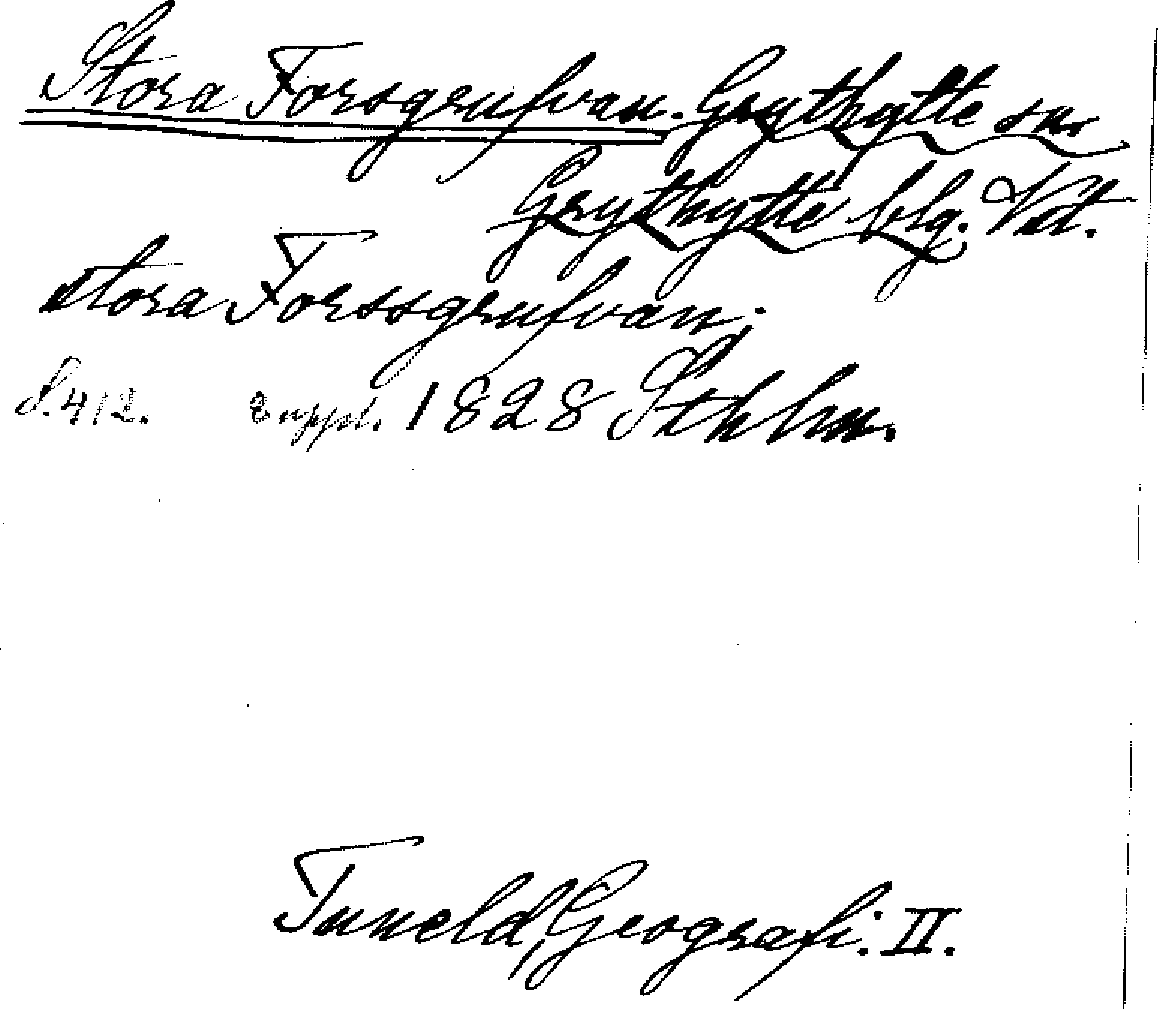 Stora Forsgrufvan. Grythytte sn.
Grythytte blg. Vst.
stora Forssgrufvan;
S. 412. Suppl. 1828 Sthlm.
Tuneld, Geografi. II.